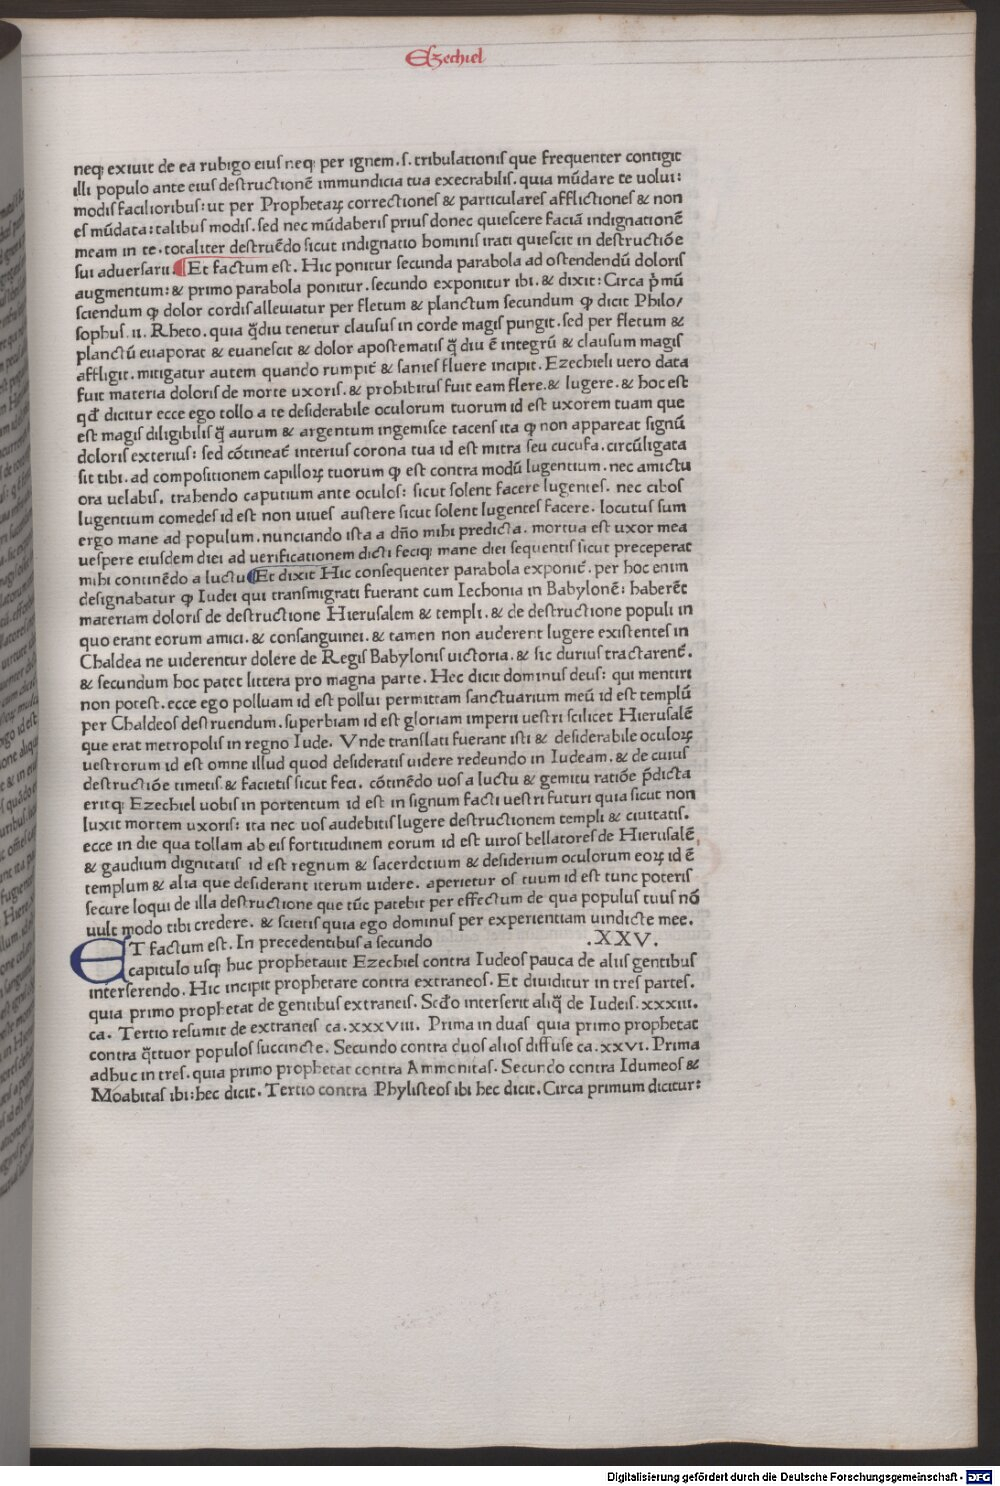 Ezechiel
neqꝫ exiuit de ea rubigo eiuſ neqꝫ per ignem. ſ. tribulationiſ que frequenter contigit
illi populo ante eiuſ deſtructionē immundicia tua execrabiliſ. quia mūdare te uolui:
modiſ facilioribuſ: ut per Prophetaꝝ correctioneſ & particulareſ afflictioneſ & non
eſ mūdata: talibuſ modiſ. ſed nec mūdaberiſ priuſ donec quieſcere faciā indignationē
meam in te. totaliter deſtruēdo ſicut indignatio hominiſ irati quieſcit in deſtructiōe
ſui aduerſarii ¶ Et factum eſt. Hic ponitur ſecunda parabola ad oſtendendū doloriſ
augmentum: & primo parabola ponitur. ſecundo exponitur ibi. & dixit: Circa p̄mū
ſciendum ꝙ dolor cordiſ alleuiatur per fletum & planctum ſecundum ꝙ dicit Philo/
ſophuſ. ii. Rheto. quia q̄diu tenetur clauſuſ in corde magiſ pungit. ſed per fletum &
planctū euaporat & euaneſcit & dolor apoſtematiſ q̄ diu ē integrū & clauſum magiſ
affligit. mitigatur autem quando rumpit̄ & ſanieſ fluere incipit. Ezechieli uero data
fuit materia doloriſ de morte uxoriſ. & prohibituſ fuit eam flere. & lugere. & hoc eſt
qđ dicitur ecce ego tollo a te deſiderabile oculorum tuorum id eſt uxorem tuam que
eſt magiſ diligibiliſ q̄ aurum & argentum ingemiſce tacenſ ita ꝙ non appareat ſignū
doloriſ exteriuſ: ſed cōtineat̄ interiuſ corona tua id eſt mitra ſeu cucufa. circūligata
ſit tibi. ad compoſitionem capilloꝝ tuorum ꝙ eſt contra modū lugentium. nec amictu
ora uelabiſ. trahendo caputium ante oculoſ: ſicut ſolent facere lugenteſ. nec ciboſ
lugentium comedeſ id eſt non uiueſ auſtere ſicut ſolent lugenteſ facere. locutuſ ſum
ergo mane ad populum. nunciando iſta a dño mihi predicta. mortua eſt uxor mea
ueſpere eiuſdem diei ad uerificationem dicti feciqꝫ mane diei ſequentiſ ſicut preceperat
mihi continēdo a luctu ¶ Et dixit Hic conſequenter parabola exponit̄. per hoc enim
deſignabatur ꝙ Iudei qui tranſmigrati fuerant cum Iechonia in Babylonē: haberēt
materiam doloriſ de deſtructione Hieruſalem & templi. & de deſtructione populi in
quo erant eorum amici. & conſanguinei. & tamen non auderent lugere exiſtenteſ in
Chaldea ne uiderentur dolere de Regiſ Babyloniſ uictoria. & ſic duriuſ tractarent̄.
& ſecundum hoc patet littera pro magna parte. Hec dicit dominuſ deuſ: qui mentiri
non poteſt. ecce ego polluam id eſt pollui permittam ſanctuarium meū id eſt templū
per Chaldeoſ deſtruendum. ſuperbiam id eſt gloriam imperii ueſtri ſcilicet Hieruſalē
que erat metropoliſ in regno Iude. Vnde tranſlati fuerant iſti & deſiderabile oculoꝝ
ueſtrorum id eſt omne illud quod deſideratiſ uidere redeundo in Iudeam. & de cuiuſ
deſtructiōe timetiſ. & facietiſ ſicut feci. cōtinēdo uoſ a luctu & gemitu ratiōe p̄dicta
eritqꝫ Ezechiel uobiſ in portentum id eſt in ſignum facti ueſtri futuri quia ſicut non
luxit mortem uxoriſ: ita nec uoſ audebitiſ lugere deſtructionem templi & ciuitatiſ.
ecce in die qua tollam ab eiſ fortitudinem eorum id eſt uiroſ bellatoreſ de Hieruſalē,
& gaudium dignitatiſ id eſt regnum & ſacerdotium & deſiderium oculorum eoꝝ id ē
templum & alia que deſiderant iterum uidere. aperietur oſ tuum id eſt tunc poteriſ
ſecure loqui de illa deſtructione que tūc patebit per effectum de qua populuſ tuuſ nō
uult modo tibi credere. & ſcietiſ quia ego dominuſ per experientiam uindicte mee.
ET factum eſt. In precedentibuſ a ſecundo .XXV.
capitulo uſqꝫ huc prophetauit Ezechiel contra Iudeoſ pauca de aliiſ gentibuſ
interſerendo. Hic incipit prophetare contra extraneoſ. Et diuiditur in treſ parteſ.
quia primo prophetat de gentibuſ extraneiſ. Scđo interſerit aliq̄ de Iudeiſ. xxxiii.
ca. Tertio reſumit de extraneiſ ca. xxxviii. Prima in duaſ quia primo prophetat
contra q̄ttuor populoſ ſuccincte. Secundo contra duoſ alioſ diffuſe ca. xxvi. Prima
adhuc in treſ. quia primo prophetat contra Ammonitaſ. Secundo contra Idumeoſ &
Moabitaſ ibi: hec dicit. Tertio contra Phyliſteoſ ibi hec dicit. Circa primum dicitur:
Digitalisierung gefördert durch die Deutsche Forschungsgemeinschaft - DFG